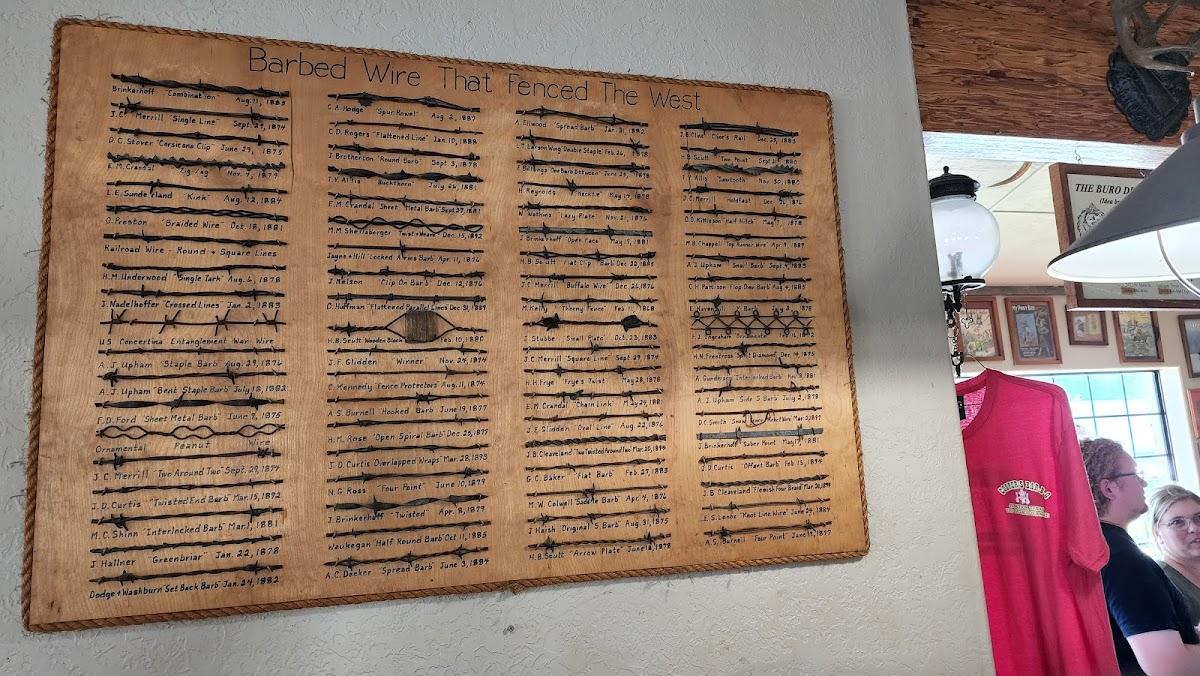 Barbed Wire That Fenced The West
Brinkerhoff "Combination" Aug. 11, 1885
J.C. Merrill "Single Line" Sept. 29, 1874
D.C. Stover "Corsicana Clip" June 29, 1875
E.M. Crandal Zig Zag Nov. 4, 1879
L.E. Sunderland "Kink" Aug. 12, 1884
O. Preston "Braided Wire" Oct. 18, 1881
Railroad Wire - Round + Square Lines
H.M. Underwood "Single Tack" Aug. 6, 1878
J. Nadelhoffer "Crossed Lines" Jan. 2, 1883
US Concertina Entanglement War Wire
A.J. Upham "Staple Barb" Aug. 29, 1876
A.J. Upham "Bent Staple Barb" July 18, 1882
F.D. Ford "Sheet Metal Barb" June 9, 1875
Ornamental Peanut Wire
J.C. Merrill "Two Around Two" Sept. 29, 1874
J.D. Curtis "Twisted End Barb" Mar. 15, 1892
M.C. Shinn "Interlocked Barb" Mar. 1, 1881
J Hallner "Greenbriar" Jan. 22, 1878
Dodge + Washburn "Set Back Barb" Jan. 24, 1882
C.A. Hodge "Spur Rowel" Aug. 2, 1887
C.D. Rogers "Flattened Line" Jan. 10, 1888
J. Brotherton "Round Barb" Sept. 3, 1878
T.V. Allis "Buckthorn" July 26, 1881
E.M. Crandal Sheet Metal Barb Sept. 27, 1881
M.M. Shellaberger "Twist + Weave" Dec. 15, 1892
Jayne + Hill "Locked Arms Barb" Apr. 11, 1876
J. Nelson "Clip On Barb" Dec. 12, 1876
O. Huffman "Flattened Parallel Lines" Dec. 31, 1889
H.B. Scutt Wooden Block Feb. 10, 1880
J.F. Glidden "Winner" Nov. 24, 1874
C. Kennedy "Fence Protectors" Aug. 11, 1874
A.S. Burnell "Hooked Barb" June 19, 1877
H.M. Rose "Open Spiral Barb" Dec. 25, 1877
J.D. Curtis Overlapped Wraps" Mar. 28, 1893
N.G. Ross "Four Point" June 10, 1879
J. Brinkerhoff "Twisted" Apr. 8, 1879
Waukegan "Half Round Barb" Oct 11, 1885
A.C. Decker "Spread Barb" June 3, 1884
A. Ellwood "Spread Barb" Jan. 31, 1882
Larson Wing "Double Staple" Feb. 26,
F. Billings "One Barb Between" June 25, 1878
H. Reynolds "Necktie" May 14, 1878
W. Watkins "Lazy Plate" Nov. 21, 1876
J. Brinkerhoff "Open Face" May 17, 1881
H.B. Scutt "Flat Clip" Barb Dec. 22,
J.C. Merrill "Buffalo Wire" Dec. 26, 1876
M. Kelly "Thorny Fence" Feb. 11, 1868
J. Stubbe "Small Plate" Oct. 23, 1883
J.C. Merrill "Square Line" Sept. 29, 1874
H.H. Frye "Frye's Twist" May 28, 1878
E.M. Crandal "Chain Link" May 24, 1881
J.B. Glidden "Oval Line" Aug. 22, 1876
J.B. Cleaveland "Two Twisted Around Two" Mar. 20, 1894
G.C. Baker "Flat Barb" Feb. 27, 1883
M.W. Colwell "Saddle Barb" Apr. 4, 1876
J Haish "Original "S" Barb" Aug. 31, 1875
H.B. Scutt "Arrow Plate" June 18, 1878
J.B. Cline "Cline's Rail Dec. 25, 1883
H.B. Scutt "Two Point" Sept.
T.V. Allis "Sawtooth Nov. 30, 1880
J.C. Merrill "Holdfast" Dec. 26, 1876
O.O. Kittleson "Half Hitch" May 7, 1878
M.B. Chappell Top Runner Wire Apr. 9, 1889
A.J. Upham "Snail Barb" Sept. 4, 1883
C.H. Pattison "Flop Over Barb" Aug. 4, 1885
Barb July 2, 1878
H.J. Ingraham
H.N. Frentress Split Diamond" Dec. 14, 1875
A. Gunderson Interlocked Barb 1881
A.J. Upham Side S Barb" July 2, 1878
D.C. Smith Mar. 2, 1897
J. Brinkerhoff "Saber Point" May 17, 1881
J.D. Curtis "Offset Barb" Feb. 13, 1894
J.B. Cleaveland "Flemish Four Braid" Mar. 20, 1894
E.S. Leebe "Knot Line Wire" June 24, 1884
A.S. Burnell "Four Point" June 19, 1877
THE BURO